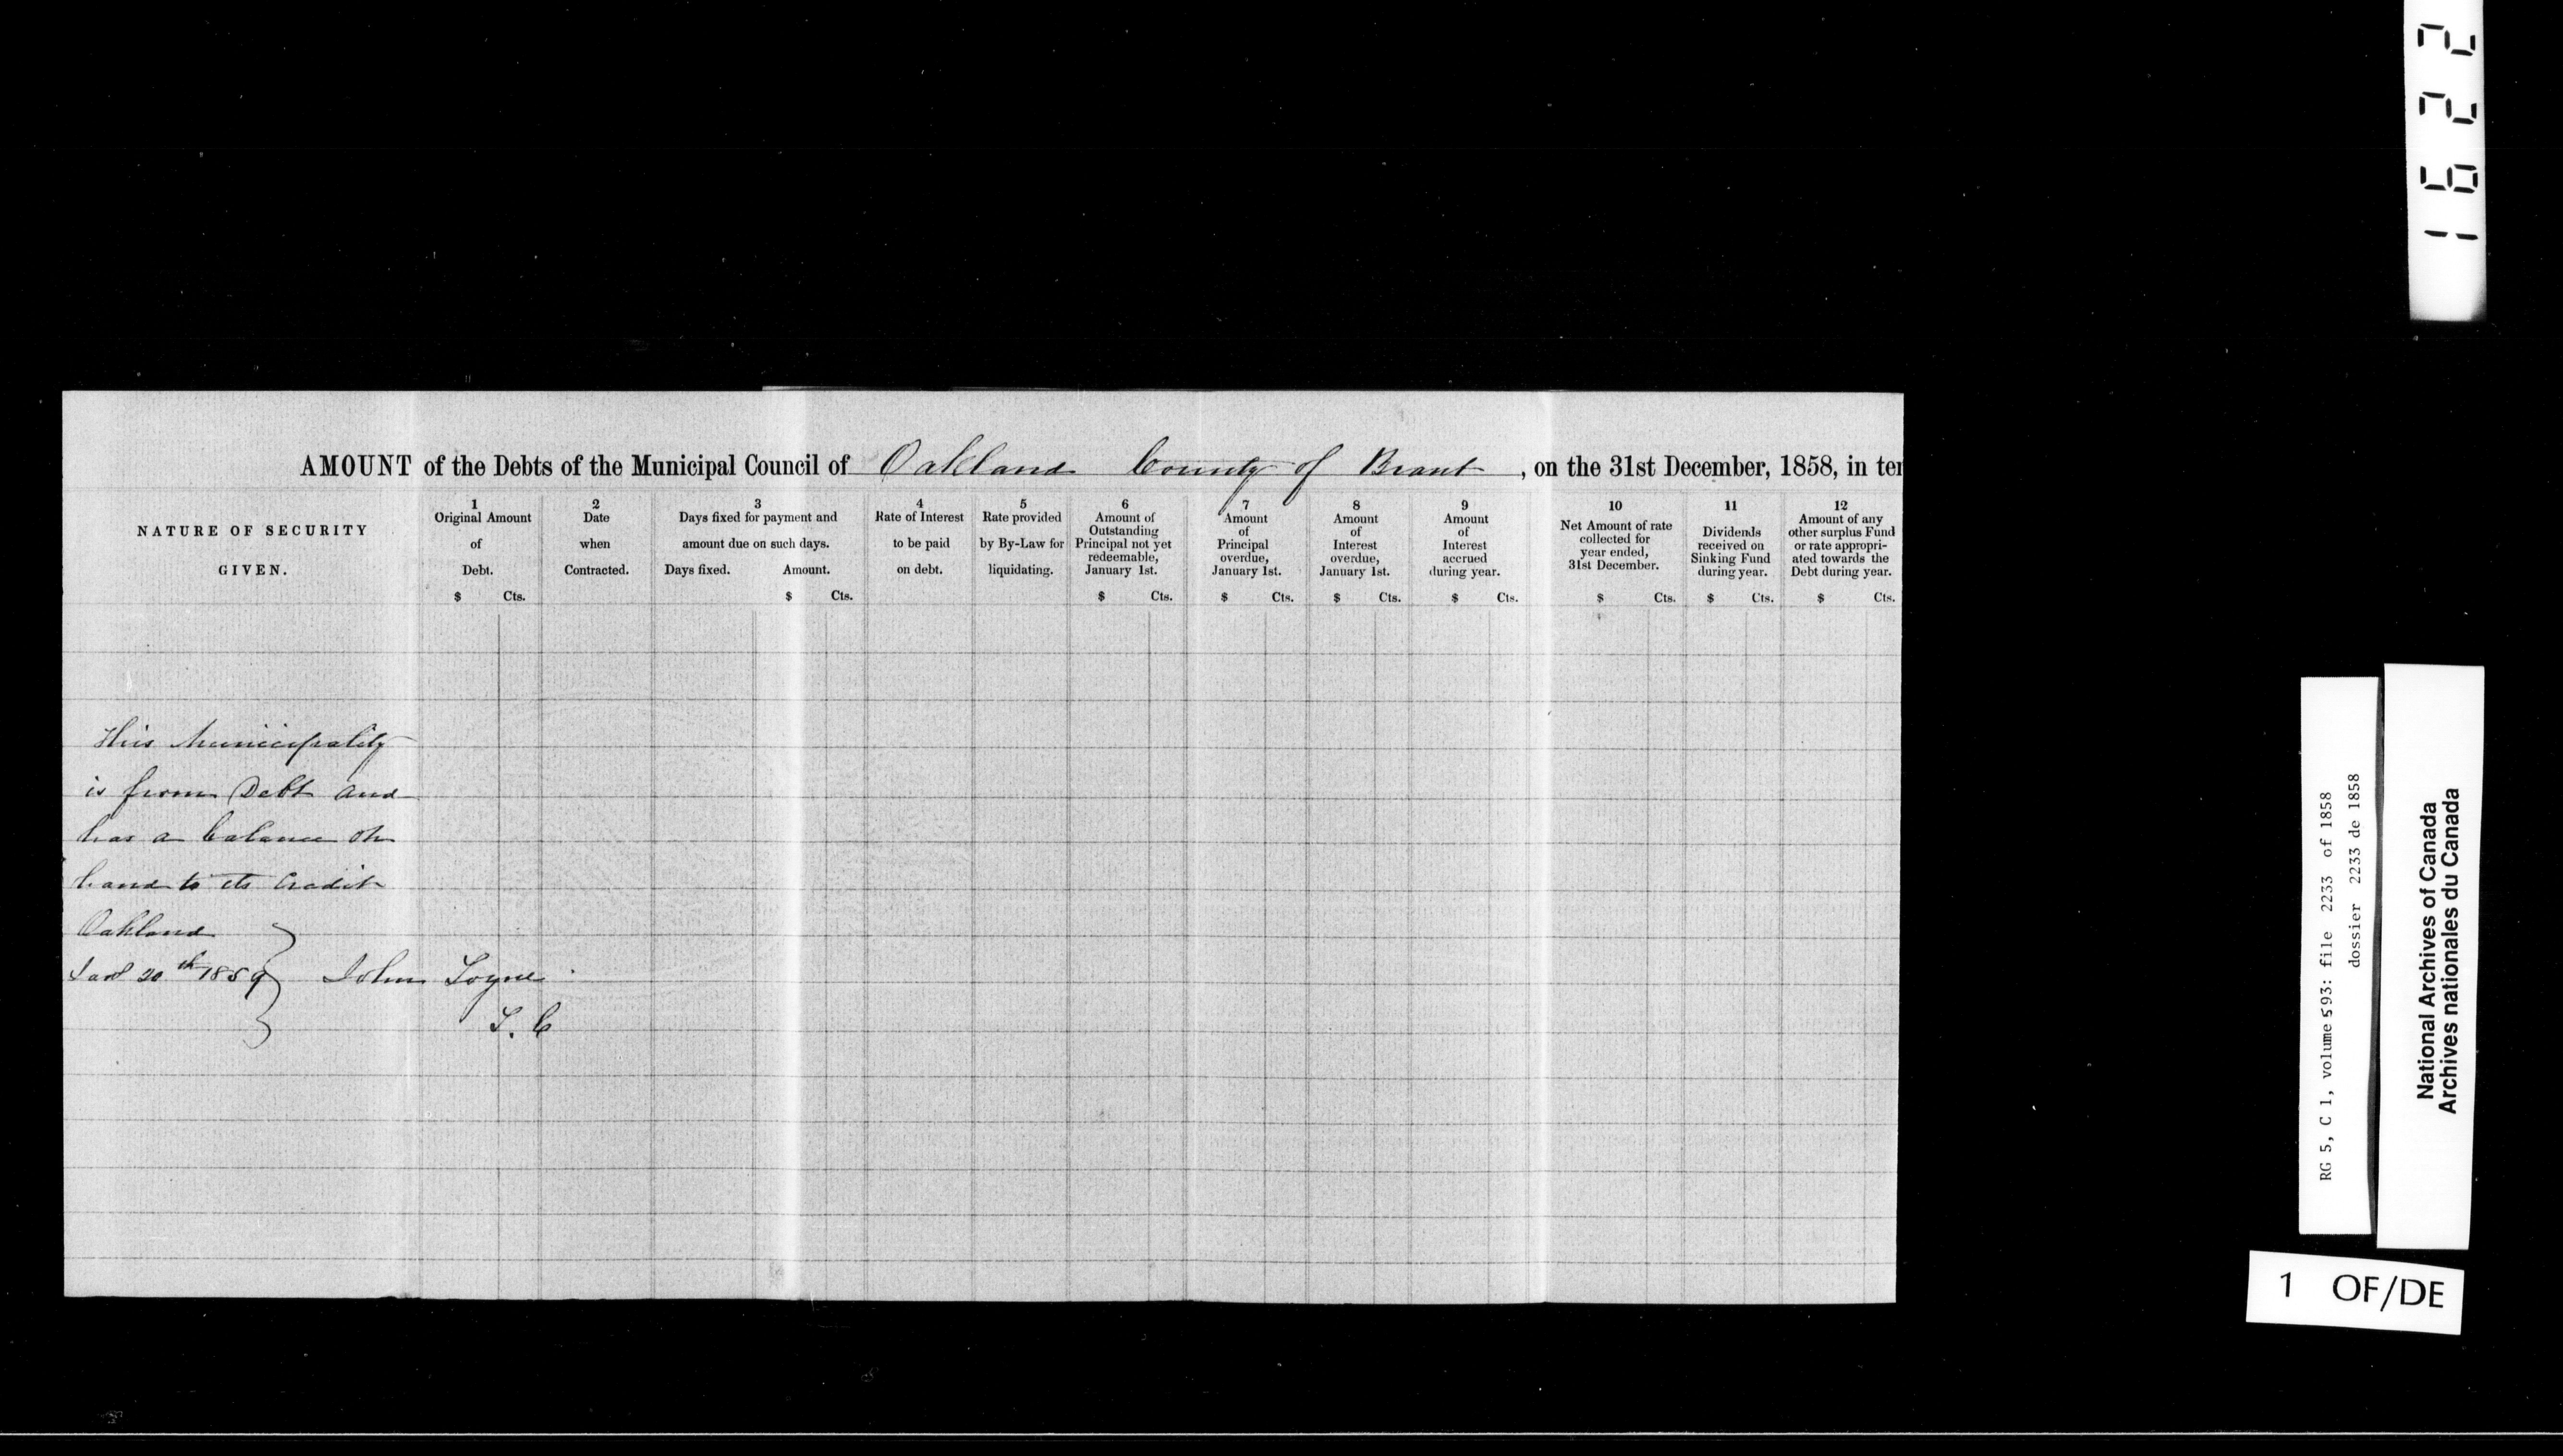 AMOUNT of the Debts of the Municipal Council of Oakland County of Brant, on the 31st December, 1858, in ter
NATURE OF SECURITY
GIVEN.
1
Original Amount
of
Debt.
$ Cts.
2
Date
when
Contracted.
3
Days fixed for payment and
amount due on such days.
Days fixed. Amount.
$ Cts.
4
Rate of Interest
to be paid
on debt.
5
Rate provided
by By-Law for
liquidating.
6
Amount of
Outstanding
Principal not yet
redeemable,
January 1st.
$ Cts.
7
Amount
of
Principal
overdue,
January 1st.
$ Cts.
8
Amount
of
Interest
overdue,
January 1st.
$ Cts.
9
Amount
of
Interest
accrued
during year.
$ Cts.
10
Net Amount of rate
collected for
year ended,
31st December.
$ Cts.
11
Dividends
received on
Sinking Fund
during year.
$ Cts.
12
Amount of any
other surplus Fund
or rate appropri-
ated towards the
Debt during year.
$ Cts.
This Municipality
is from Debt and
has a balance on
hand to its Credit
Oakland
20th 1859 John Toyne
T. C
1622
RG 5, C 1, volume 593: file 2233 of 1858
dossier 2233 de 1858
National Archives of Canada
Archives nationales du Canada
1 OF/DE